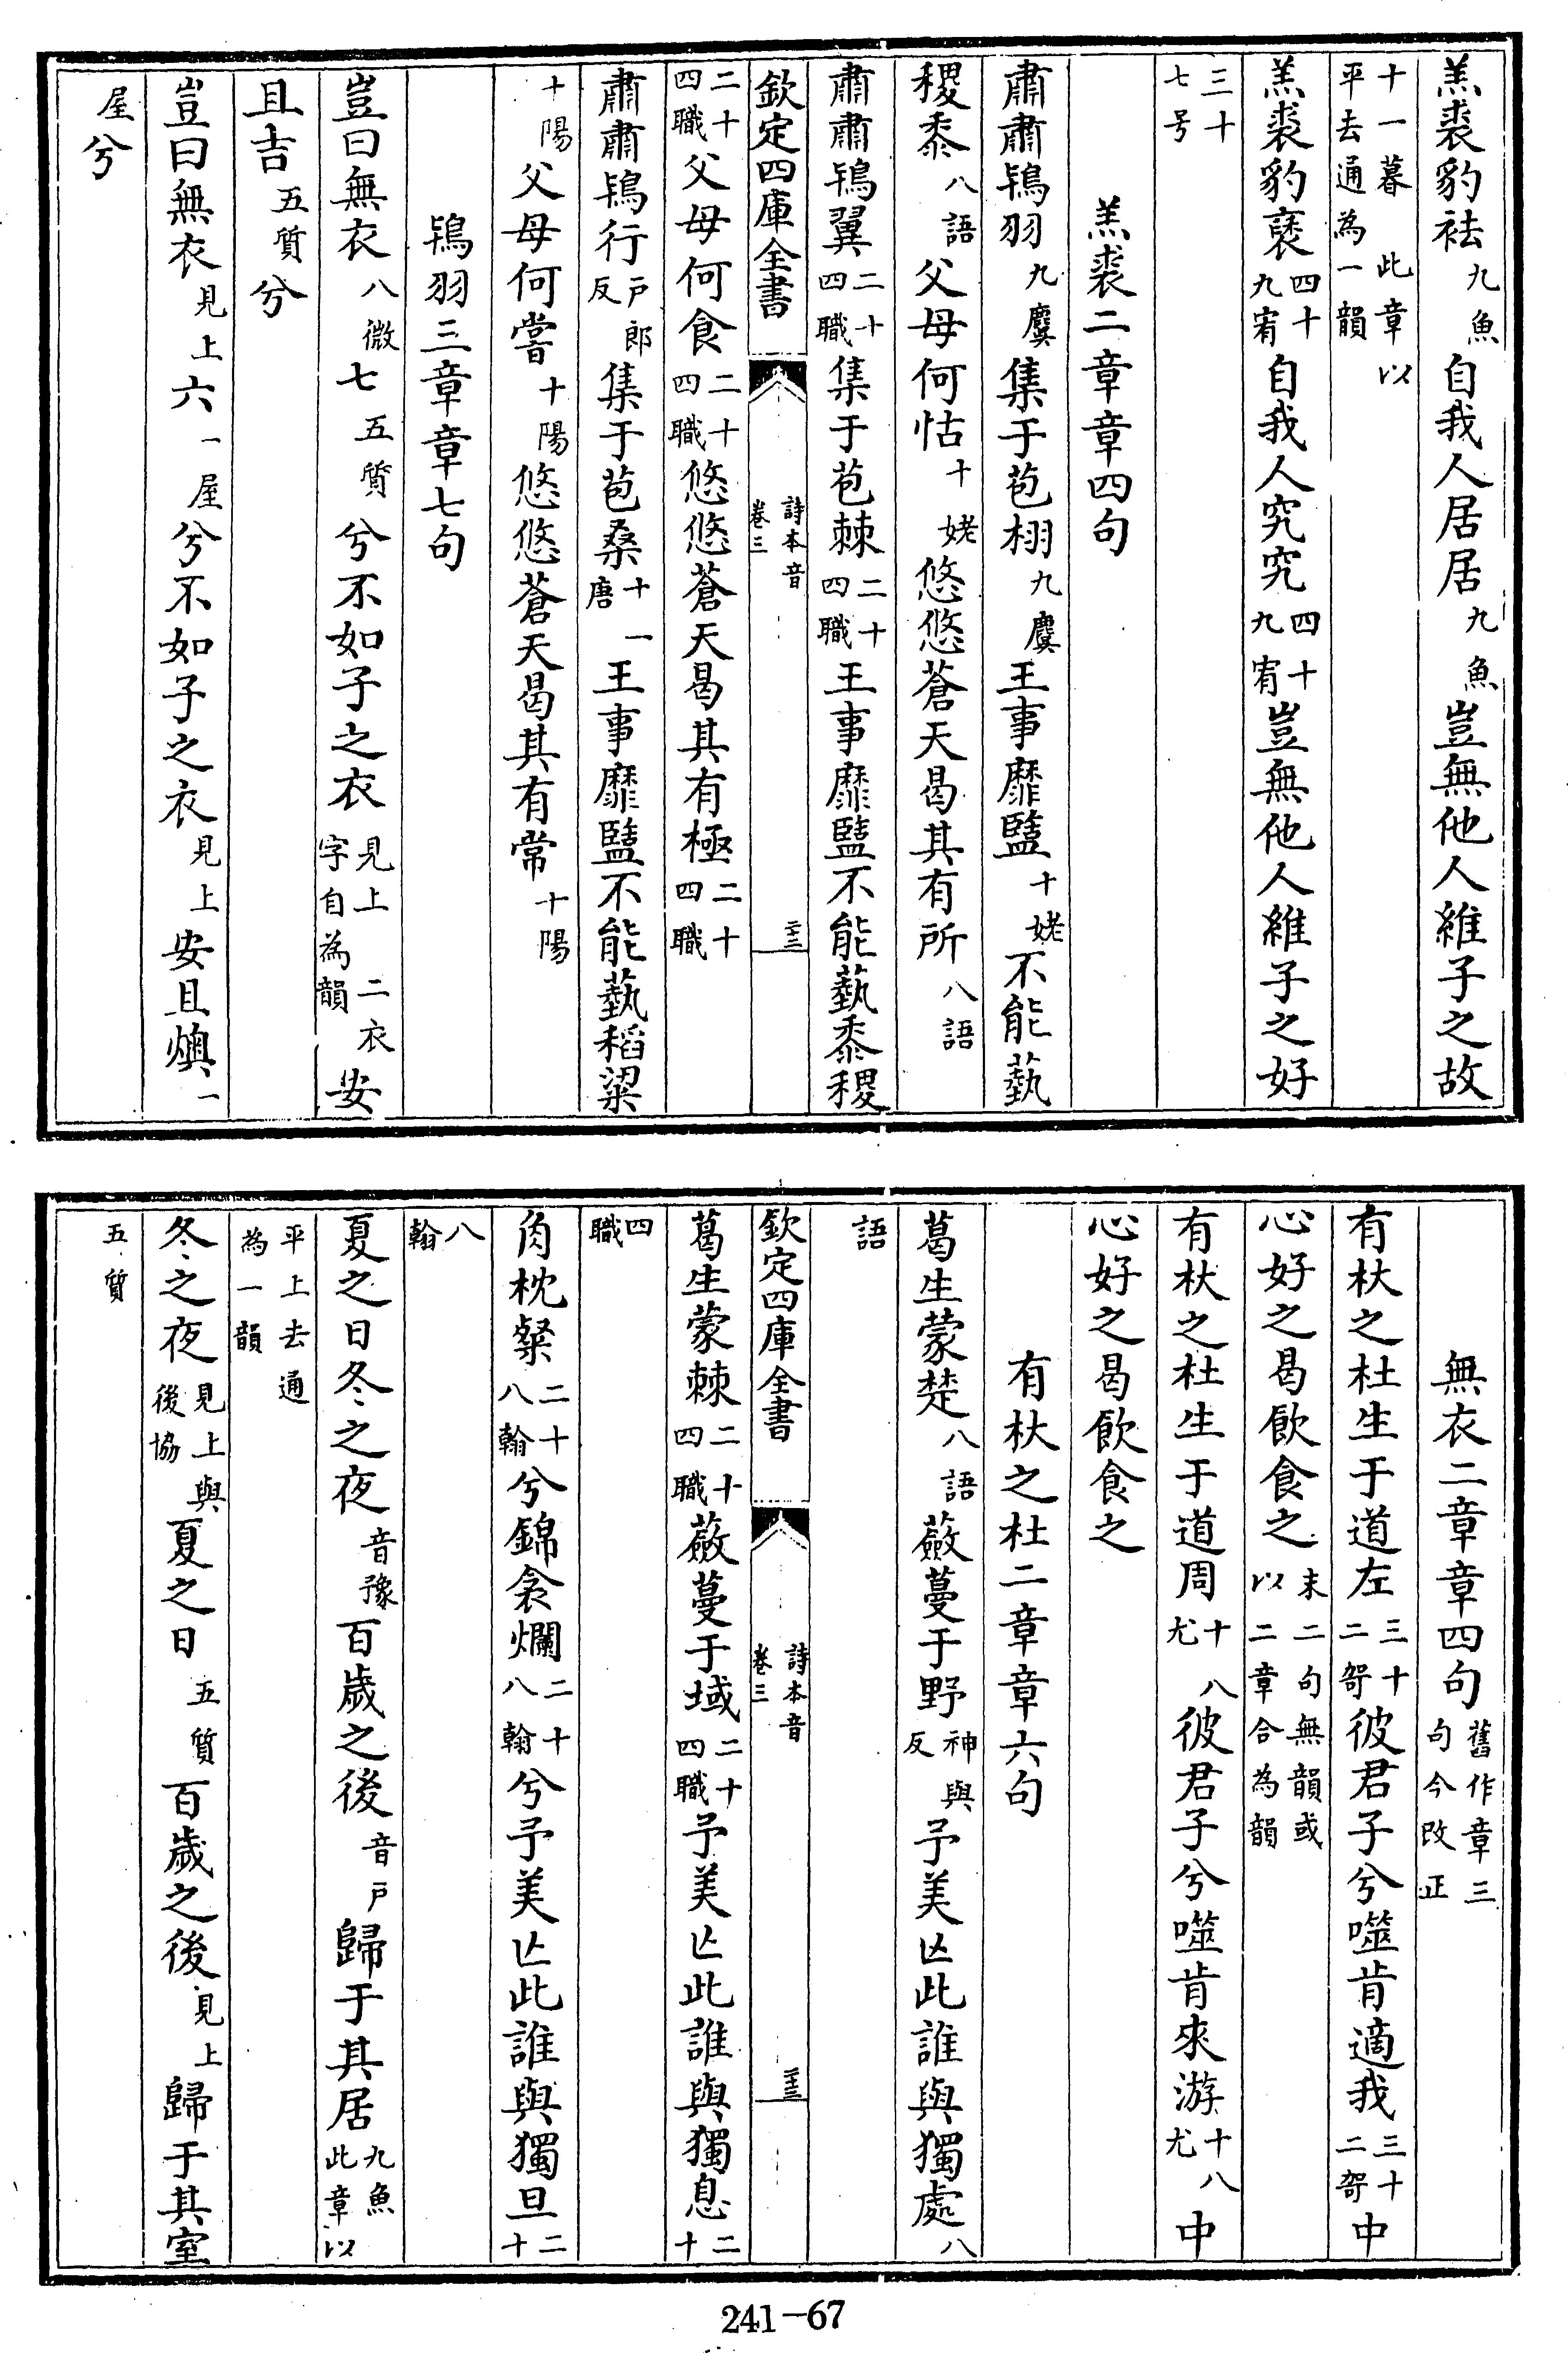 羔裘豹袪九魚自我人居居九魚豈無他人維子之故
十一暮 此章以平去通為一韻
羔裘豹褎四十九宥自我人究究四十九宥豈無他人維子之好
三十七号
羔裘二章章四句
肅肅鴇羽九麌集于苞栩九麌王事靡盬十姥不能蓺
稷黍八語父母何怙十姥悠悠蒼天曷其有所八語
肅肅鴇翼二十四職集于苞棘二十四職王事靡盬不能蓺黍稷
欽定四庫全書 詩本音 卷三 二十三
二十四職父母何食二十四職悠悠蒼天曷其有極二十四職
肅肅鴇行戶郎反集于苞桑十一唐王事靡盬不能蓺稻粱
十陽父母何嘗十陽悠悠蒼天曷其有常十陽
鴇羽三章章七句
豈曰無衣八微七五質兮不如子之衣見上 二衣字自為韻安
且吉五質兮
豈曰無衣見上六一屋兮不如子之衣見上安且燠一
屋兮
無衣二章章四句舊作章三句今改正
有杕之杜生于道左三十二哿彼君子兮噬肯適我三十二哿中
心好之曷飲食之末二句無韻或以二章合為韻
有杕之杜生于道周十八尤彼君子兮噬肯來游十八尤中
心好之曷飲食之
有杕之杜二章章六句
葛生蒙楚八語蘞蔓于野神與反予美亾此誰與獨處八
語
欽定四庫全書 詩本音 卷三 二十三
葛生蒙棘二十四職蘞蔓于域二十四職予美亾此誰與獨息二十
四職
角枕粲二十八翰兮錦衾爛二十八翰兮予美亾此誰與獨旦二十
八翰
夏之日冬之夜音豫百歲之後音戶歸于其居九魚 此章以
平上去通為一韻
冬之夜見上與後協夏之日五質百歲之後見上歸于其室
五質
241-67